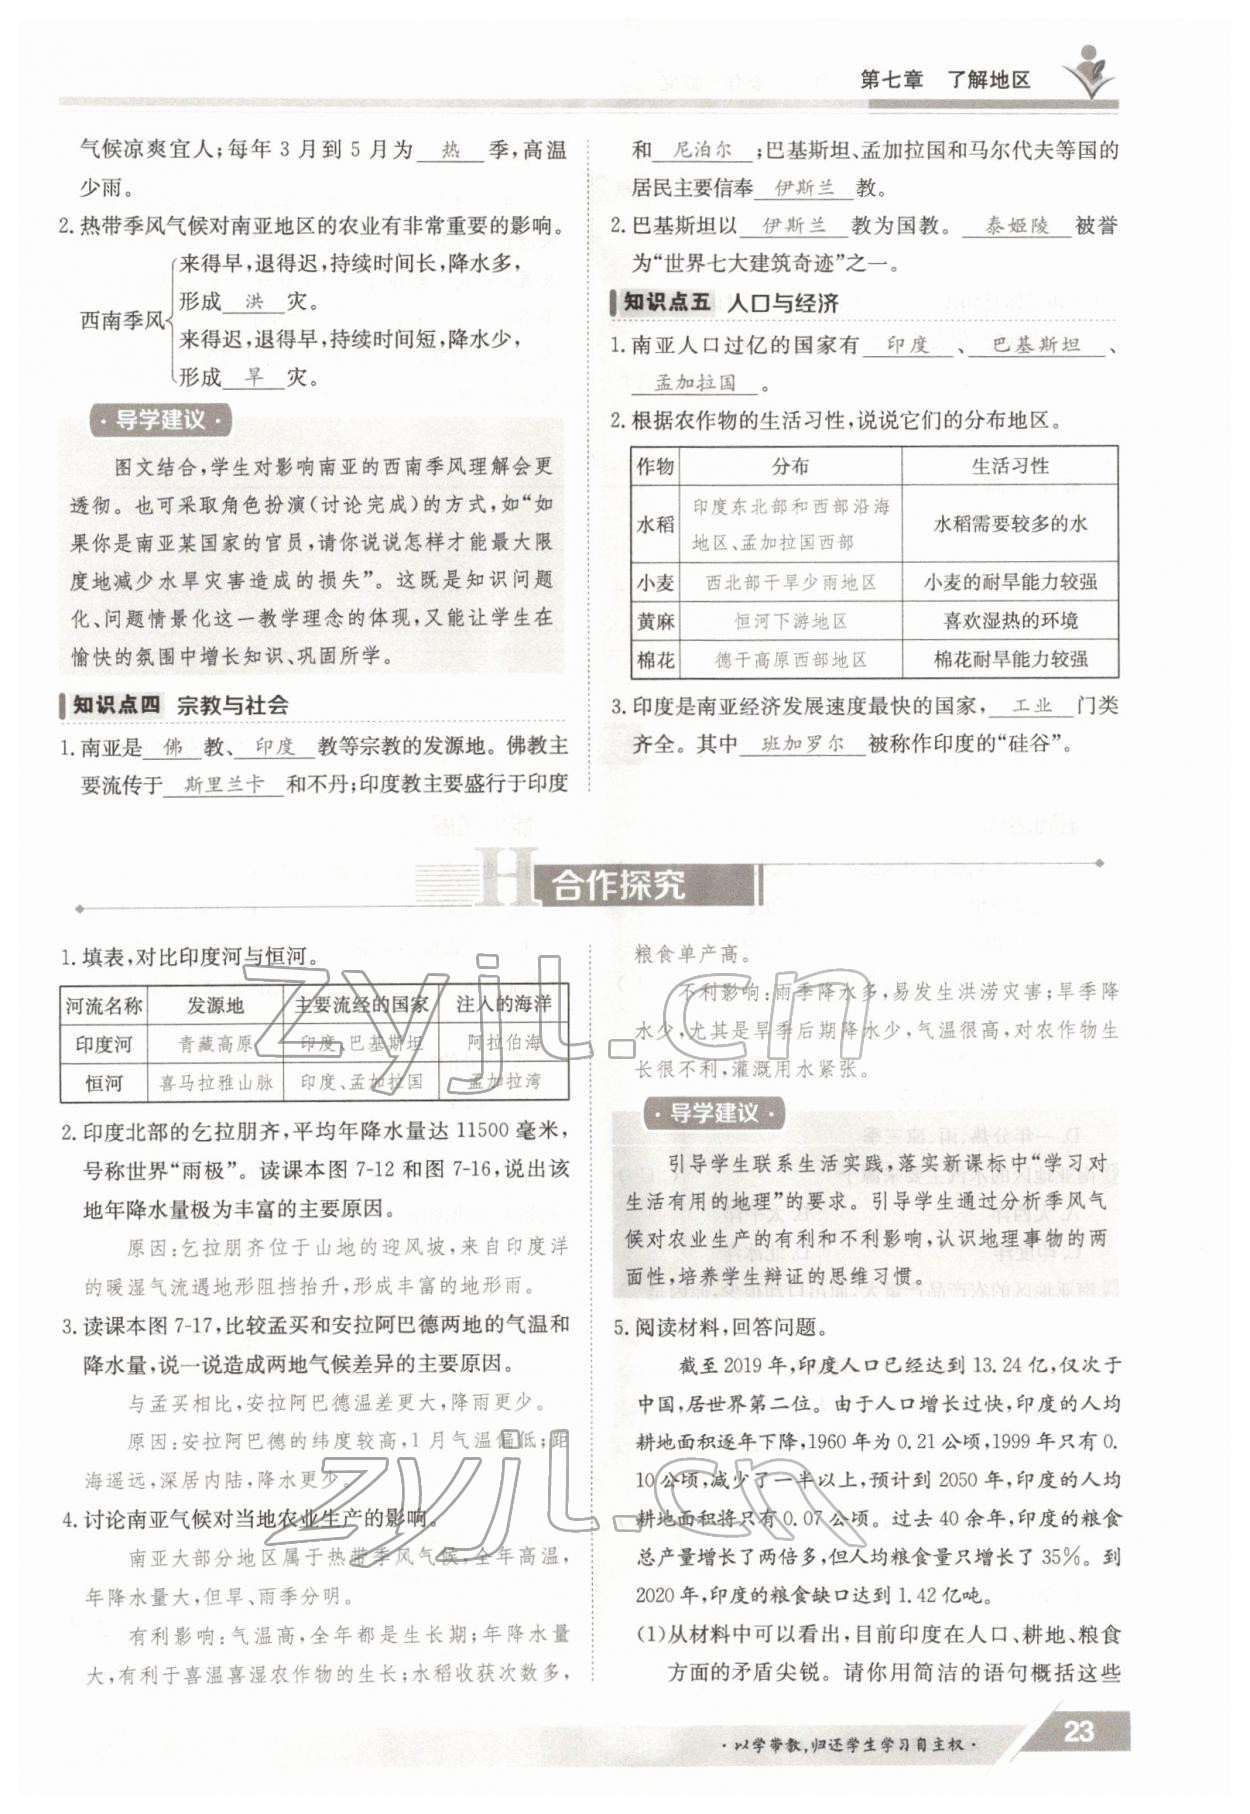 第七章 了解地区
气候凉爽宜人;每年3月到5月为 热 季,高温
少雨。
2. 热带季风气候对南亚地区的农业有非常重要的影响。
西南季风
来得早,退得迟,持续时间长,降水多,
形成 洪 灾。
来得迟,退得早,持续时间短,降水少,
形成 旱 灾。
·导学建议·
图文结合,学生对影响南亚的西南季风理解会更
透彻。也可采取角色扮演(讨论完成)的方式,如“如
果你是南亚某国家的官员,请你说说怎样才能最大限
度地减少水旱灾害造成的损失”。这既是知识问题
化、问题情景化这一教学理念的体现,又能让学生在
愉快的氛围中增长知识、巩固所学。
知识点四 宗教与社会
1. 南亚是 佛 教、 印度 教等宗教的发源地。佛教主
要流传于 斯里兰卡 和不丹;印度教主要盛行于印度
和 尼泊尔 ;巴基斯坦、孟加拉国和马尔代夫等国的
居民主要信奉 伊斯兰 教。
2. 巴基斯坦以 伊斯兰 教为国教。 泰姬陵 被誉
为“世界七大建筑奇迹”之一。
知识点五 人口与经济
1. 南亚人口过亿的国家有 印度 、 巴基斯坦 、
孟加拉国 。
2. 根据农作物的生活习性,说说它们的分布地区。
作物 分布 生活习性
水稻 印度东北部和西部沿海 水稻需要较多的水
地区、孟加拉国西部
小麦 西北部干旱少雨地区 小麦的耐旱能力较强
黄麻 恒河下游地区 喜欢湿热的环境
棉花 德干高原西部地区 棉花耐旱能力较强
3. 印度是南亚经济发展速度最快的国家, 工业 门类
齐全。其中 班加罗尔 被称作印度的“硅谷”。
H 合作探究
1. 填表,对比印度河与恒河。
河流名称 发源地 主要流经的国家 注入的海洋
印度河 青藏高原 印度、巴基斯坦 阿拉伯海
恒河 喜马拉雅山脉 印度、孟加拉国 孟加拉湾
2. 印度北部的乞拉朋齐,平均年降水量达11500毫米,
号称世界“雨极”。读课本图7-12和图7-16,说出该
地年降水量极为丰富的主要原因。
原因:乞拉朋齐位于山地的迎风坡,来自印度洋
的暖湿气流遇地形阻挡抬升,形成丰富的地形雨。
3. 读课本图7-17,比较孟买和安拉阿巴德两地的气温和
降水量,说一说造成两地气候差异的主要原因。
与孟买相比,安拉阿巴德温差更大,降雨更少。
原因:安拉阿巴德的纬度较高,1月气温偏低;距
海遥远,深居内陆,降水更少。
4. 讨论南亚气候对当地农业生产的影响。
南亚大部分地区属于热带季风气候,全年高温,
年降水量大,但旱、雨季分明。
有利影响:气温高,全年都是生长期;年降水量
大,有利于喜温喜湿农作物的生长;水稻收获次数多,
粮食单产高。
不利影响:雨季降水多,易发生洪涝灾害;旱季降
水少,尤其是旱季后期降水少,气温很高,对农作物生
长很不利,灌溉用水紧张。
·导学建议·
引导学生联系生活实践,落实新课标中“学习对
生活有用的地理”的要求。引导学生通过分析季风气
候对农业生产的有利和不利影响,认识地理事物的两
面性,培养学生辩证的思维习惯。
5. 阅读材料,回答问题。
截至2019年,印度人口已经达到13.24亿,仅次于
中国,居世界第二位。由于人口增长过快,印度的人均
耕地面积逐年下降,1960年为0.21公顷,1999年只有0.
10公顷,减少了一半以上,预计到2050年,印度的人均
耕地面积将只有0.07公顷。过去40余年,印度的粮食
总产量增长了两倍多,但人均粮食量只增长了35%。到
2020年,印度的粮食缺口达到1.42亿吨。
(1)从材料中可以看出,目前印度在人口、耕地、粮食
方面的矛盾尖锐。请你用简洁的语句概括这些
·以学带教,归还学生学习自主权·
23
zyjl.cn
zyjl.cn